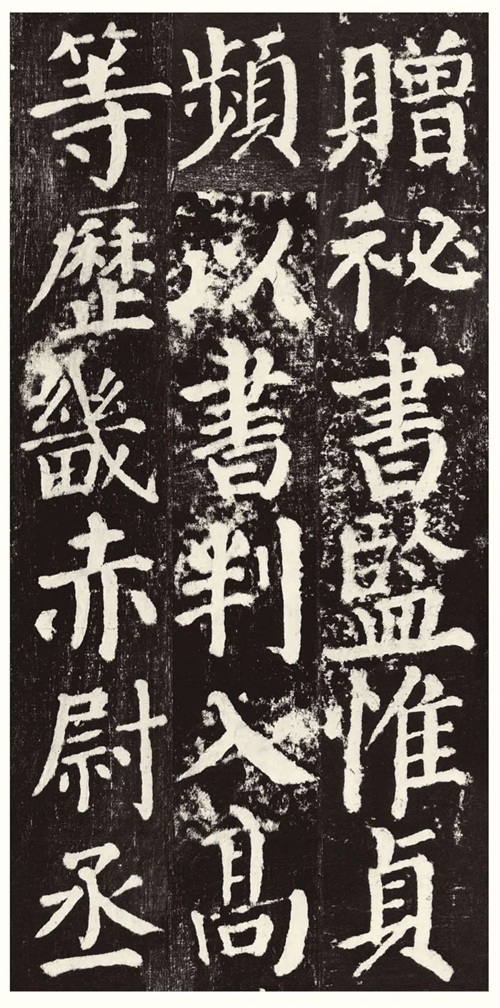 贈祕書監惟貞
頻以書判入髙
等歷畿赤尉丞